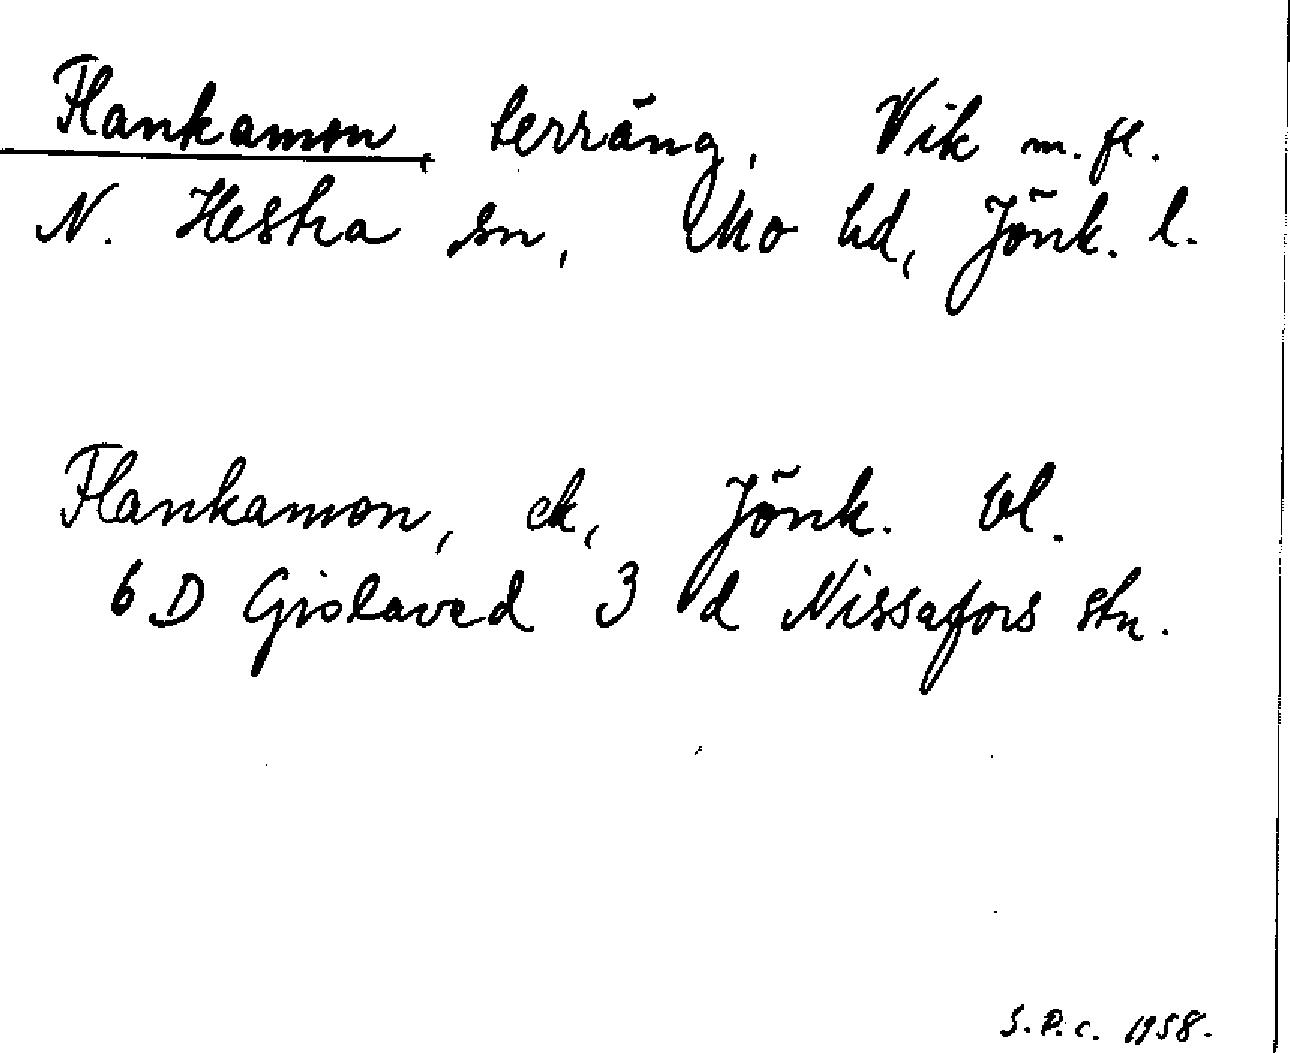 Flankamon, terräng, Vik m. fl.
N. Hestra sn, Mo hd, Jönk. l.
Flankamon, ek, Jönk. bl.
6 D Gislaved 3 d Nissafors stn.
S.P.C. 1958.